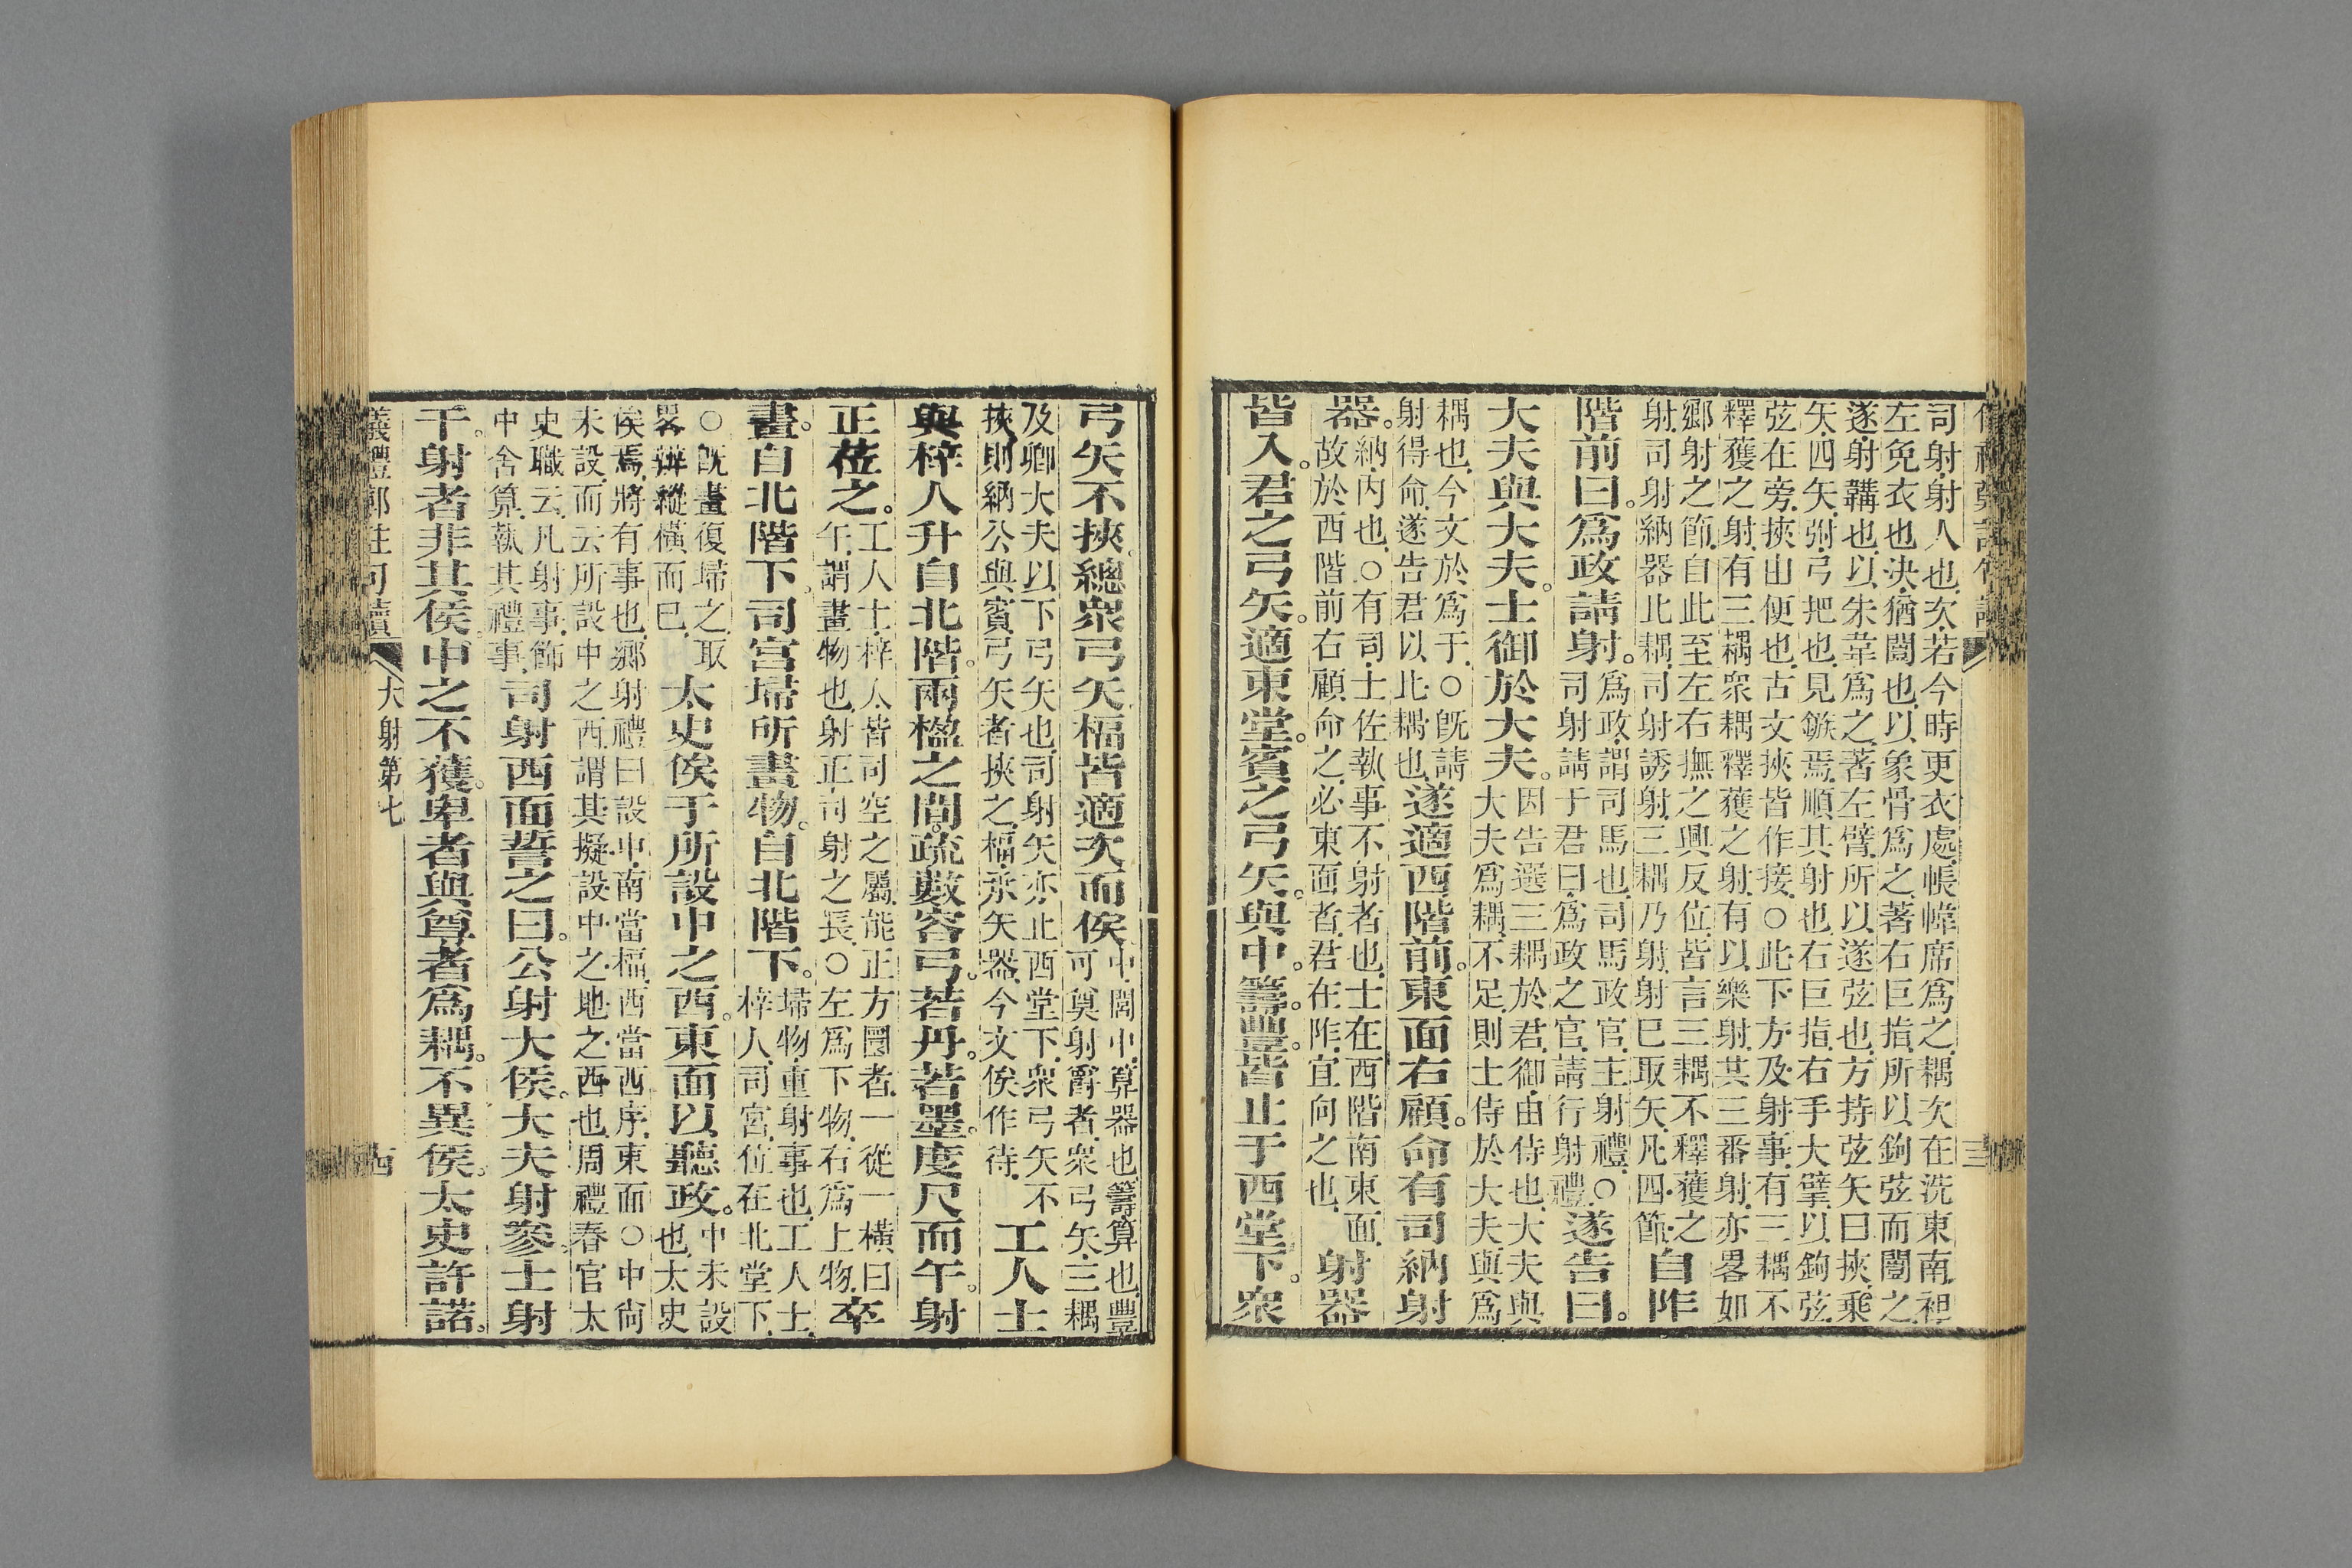 司射.射人也.次.若今時更衣處.帳幃席爲之.耦次在洗東南.袒
左免衣也.決.猶闓也.以象骨爲之.著右巨指.所以鉤弦而闓之.
遂.射韝也.以朱韋爲之.著左臂.所以遂弦也.方持弦矢曰挾.乘
矢.四矢.弣.弓把也.見鏃焉.順其射也.右巨指.右手大擘.以鉤弦.
弦在旁.挾由便也.古文挾皆作接.○此下方及射事.有三耦不
釋獲之射.有三耦衆耦釋獲之射.有以樂射.共三番射.亦畧如
鄉射之節.自此至左右撫之興反位.皆言三耦不釋獲之
射.司射納器比耦.司射誘射.三耦乃射.射已取矢.凡四節.自阼
階前曰.爲政請射.爲政.謂司馬也.司馬政官.主射禮.○
司射請于君曰.爲政之官.請行射禮.遂告曰.
大夫與大夫.士御於大夫.因告選三耦於君.御.由侍也.大夫與
大夫爲耦.不足.則士侍於大夫.與爲
耦也.今文於爲于.○旣請
射得命.遂告君以比耦也.遂適西階前.東面右顧.命有司納射
器.納.內也.○有司.士佐執事不射者也.士在西階南東面.
故於西階前右顧命之.必東面者.君在阼.宜向之也.射器
皆入.君之弓矢.適東堂.賓之弓矢.與中.籌.豐.皆止于西堂下.衆
弓矢不挾.總衆弓矢楅.皆適次而俟.中.閭中.算器也.籌.算也.豐.
可奠射爵者.衆弓矢.三耦
及卿大夫以下弓矢也.司射矢亦止西堂下.衆弓矢不
挾.則納公與賓弓矢者挾之.楅.承矢器.今文俟作待.工人士
與梓人升自北階.兩楹之間.疏數容弓.若丹.若墨.度尺而午.射
正莅之.工人士.梓人.皆司空之屬.能正方圜者.一從一橫曰
午.謂畫物也.射正.司射之長.○左爲下物.右爲上物.卒
畫.自北階下.司宮埽所畫物.自北階下.埽物.重射事也.工人士.
梓人.司宮.位在北堂下.
○旣畫復埽之.取
畧辨縱橫而已.太史俟于所設中之西.東面以聽政.中未設
也.太史
俟焉.將有事也.鄉射禮曰.設中.南當楅.西當西序.東面.○中尙
未設.而云所設中之西.謂其擬設中之地之西也.周禮春官太
史職云.凡射事.飾
中舍算.執其禮事.司射西面誓之曰.公射大侯.大夫射參.士射
干.射者非其侯.中之不獲.卑者與尊者爲耦.不異侯.太史許諾.
大射第七